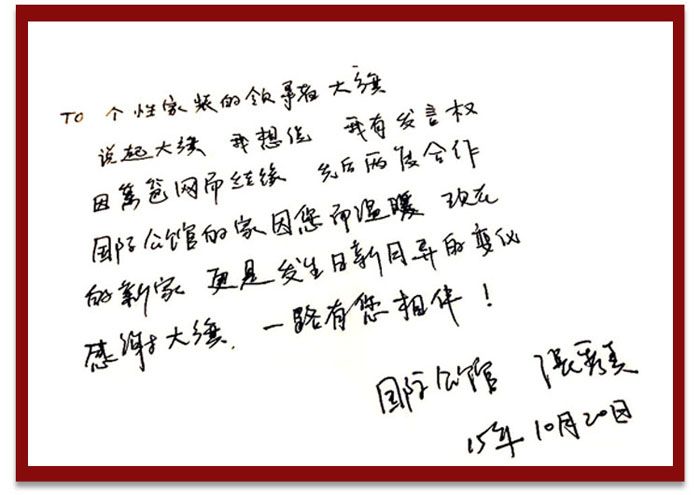 TO 个性家装的领导者大嬟
说起大嬟 我想说 我有发言权
因篱笆网而结缘 先后两度合作
国际公馆的家因您而温暖 现在
的新家 更是发生日新月异的变化
感谢大嬟,一路有您相伴!
国际公馆 张秀美
15年10月20日